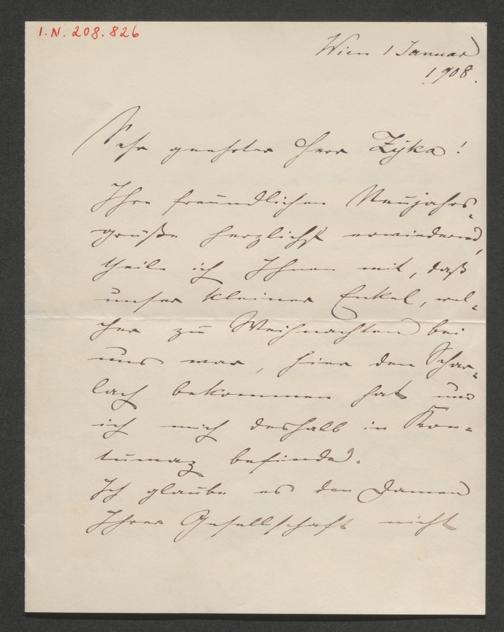 I.N. 208.826
Wien 1 Januar
1908.
Sehr geehrter Herr Zyka!
Ihre freundlichen Neujahrs-
grüße herzlichst erwiedernd,
theile ich Ihnen mit, daß
unser kleiner Enkel, wel-
cher zu Weihnachten bei
uns war, hier den Schar-
lach bekommen hat und
ich mich deshalb in Kon-
tumaz befinde.
Ich glaube es den Damen
Ihrer Gesellschaft nicht